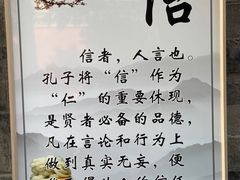 信
信者，人言也。
孔子将“信”作为
“仁”的重要体现，
是贤者必备的品德，
凡在言论和行为上
做到真实无妄，便